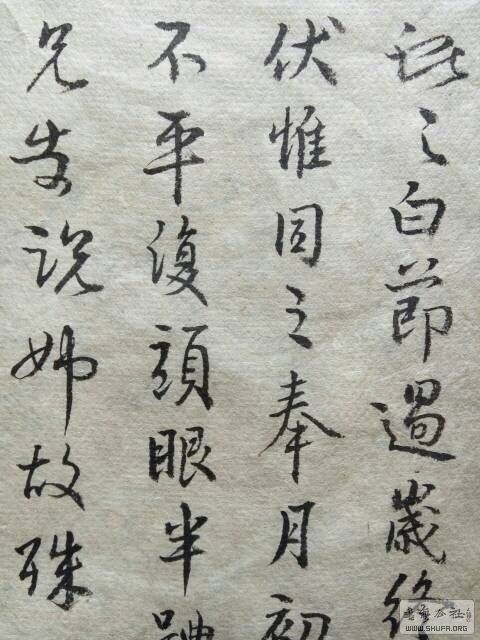 之白節過歲終
伏惟同之奉月初
不平復頭眼半
兄告說姊故殊
書藝公社
WWW.SHUFA.ORG